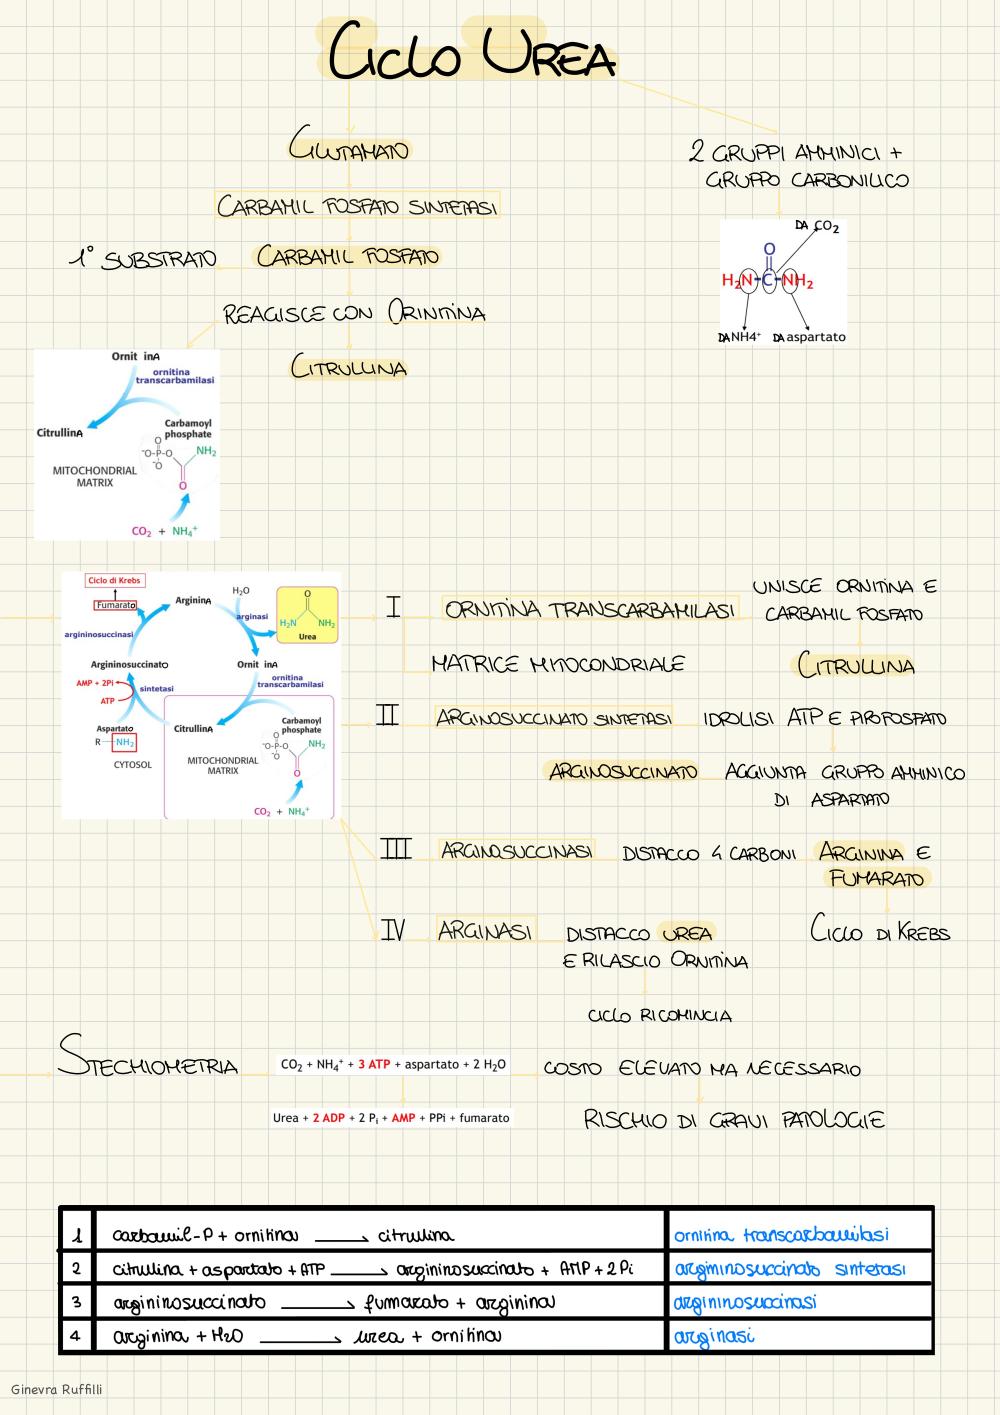 CICLO UREA
GLUTAMATO
CARBAMIL FOSFATO SINTETASI
1° SUBSTRATO
CARBAMIL FOSFATO
REAGISCE CON ORINITINA
CITRULLINA
2 GRUPPI AMMINICI +
GRUPPO CARBONILICO
DA CO₂
O
H₂N-C-NH₂
DA NH4⁺
DA aspartato
Ornit inA
ornitina
transcarbamilasi
CitrullinA
Carbamoyl
phosphate
⁻O-P-O
O
⁻O
NH₂
O
MITOCHONDRIAL
MATRIX
CO₂ + NH₄⁺
Ciclo di Krebs
Fumarato
ArgininA
H₂O
arginasi
O
H₂N
NH₂
Urea
argininosuccinasi
Argininosuccinato
Ornit inA
AMP + 2Pi
ATP
sintetasi
ornitina
transcarbamilasi
Aspartato
R-NH₂
CYTOSOL
CitrullinA
Carbamoyl
phosphate
⁻O-P-O
O
⁻O
NH₂
O
MITOCHONDRIAL
MATRIX
CO₂ + NH₄⁺
I
ORNITINA TRANSCARBAMILASI
UNISCE ORNITINA E
CARBAMIL FOSFATO
MATRICE MITOCONDRIALE
CITRULLINA
II
ARGINOSUCCINATO SINTETASI
IDROLISI ATP E PIROFOSFATO
ARGINOSUCCINATO
AGGIUNTA GRUPPO AMMINICO
DI ASPARTATO
III
ARGINOSUCCINASI
DISTACCO 4 CARBONI
ARGININA E
FUMARATO
CICLO DI KREBS
IV
ARGINASI
DISTACCO UREA
E RILASCIO ORNITINA
CICLO RICOMINCIA
STECHIOMETRIA
CO₂ + NH₄⁺ + 3 ATP + aspartato + 2 H₂O
Urea + 2 ADP + 2 Pᵢ + AMP + PPi + fumarato
COSTO ELEVATO MA NECESSARIO
RISCHIO DI GRAVI PATOLOGIE
1 carbamil-P + ornitina → citrulina ornitina transcarbamilasi
2 citrulina + aspartato + ATP → argininosuccinato + AMP + 2Pi argininosuccinato sintetasi
3 argininosuccinato → fumarato + arginina argininosuccinasi
4 arginina + H₂O → urea + ornitina arginasi
Ginevra Ruffilli